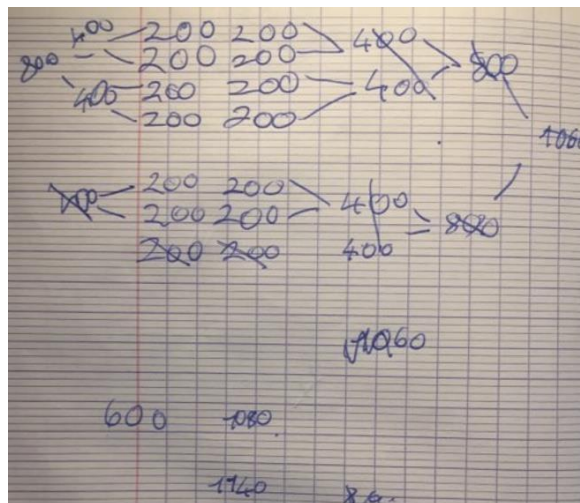 400 200 200 400
800 200 200 800
400 200 200 400
200 200
1060
400 200 200 400
200 200 800
200 200 400
1060
600 1080
1140